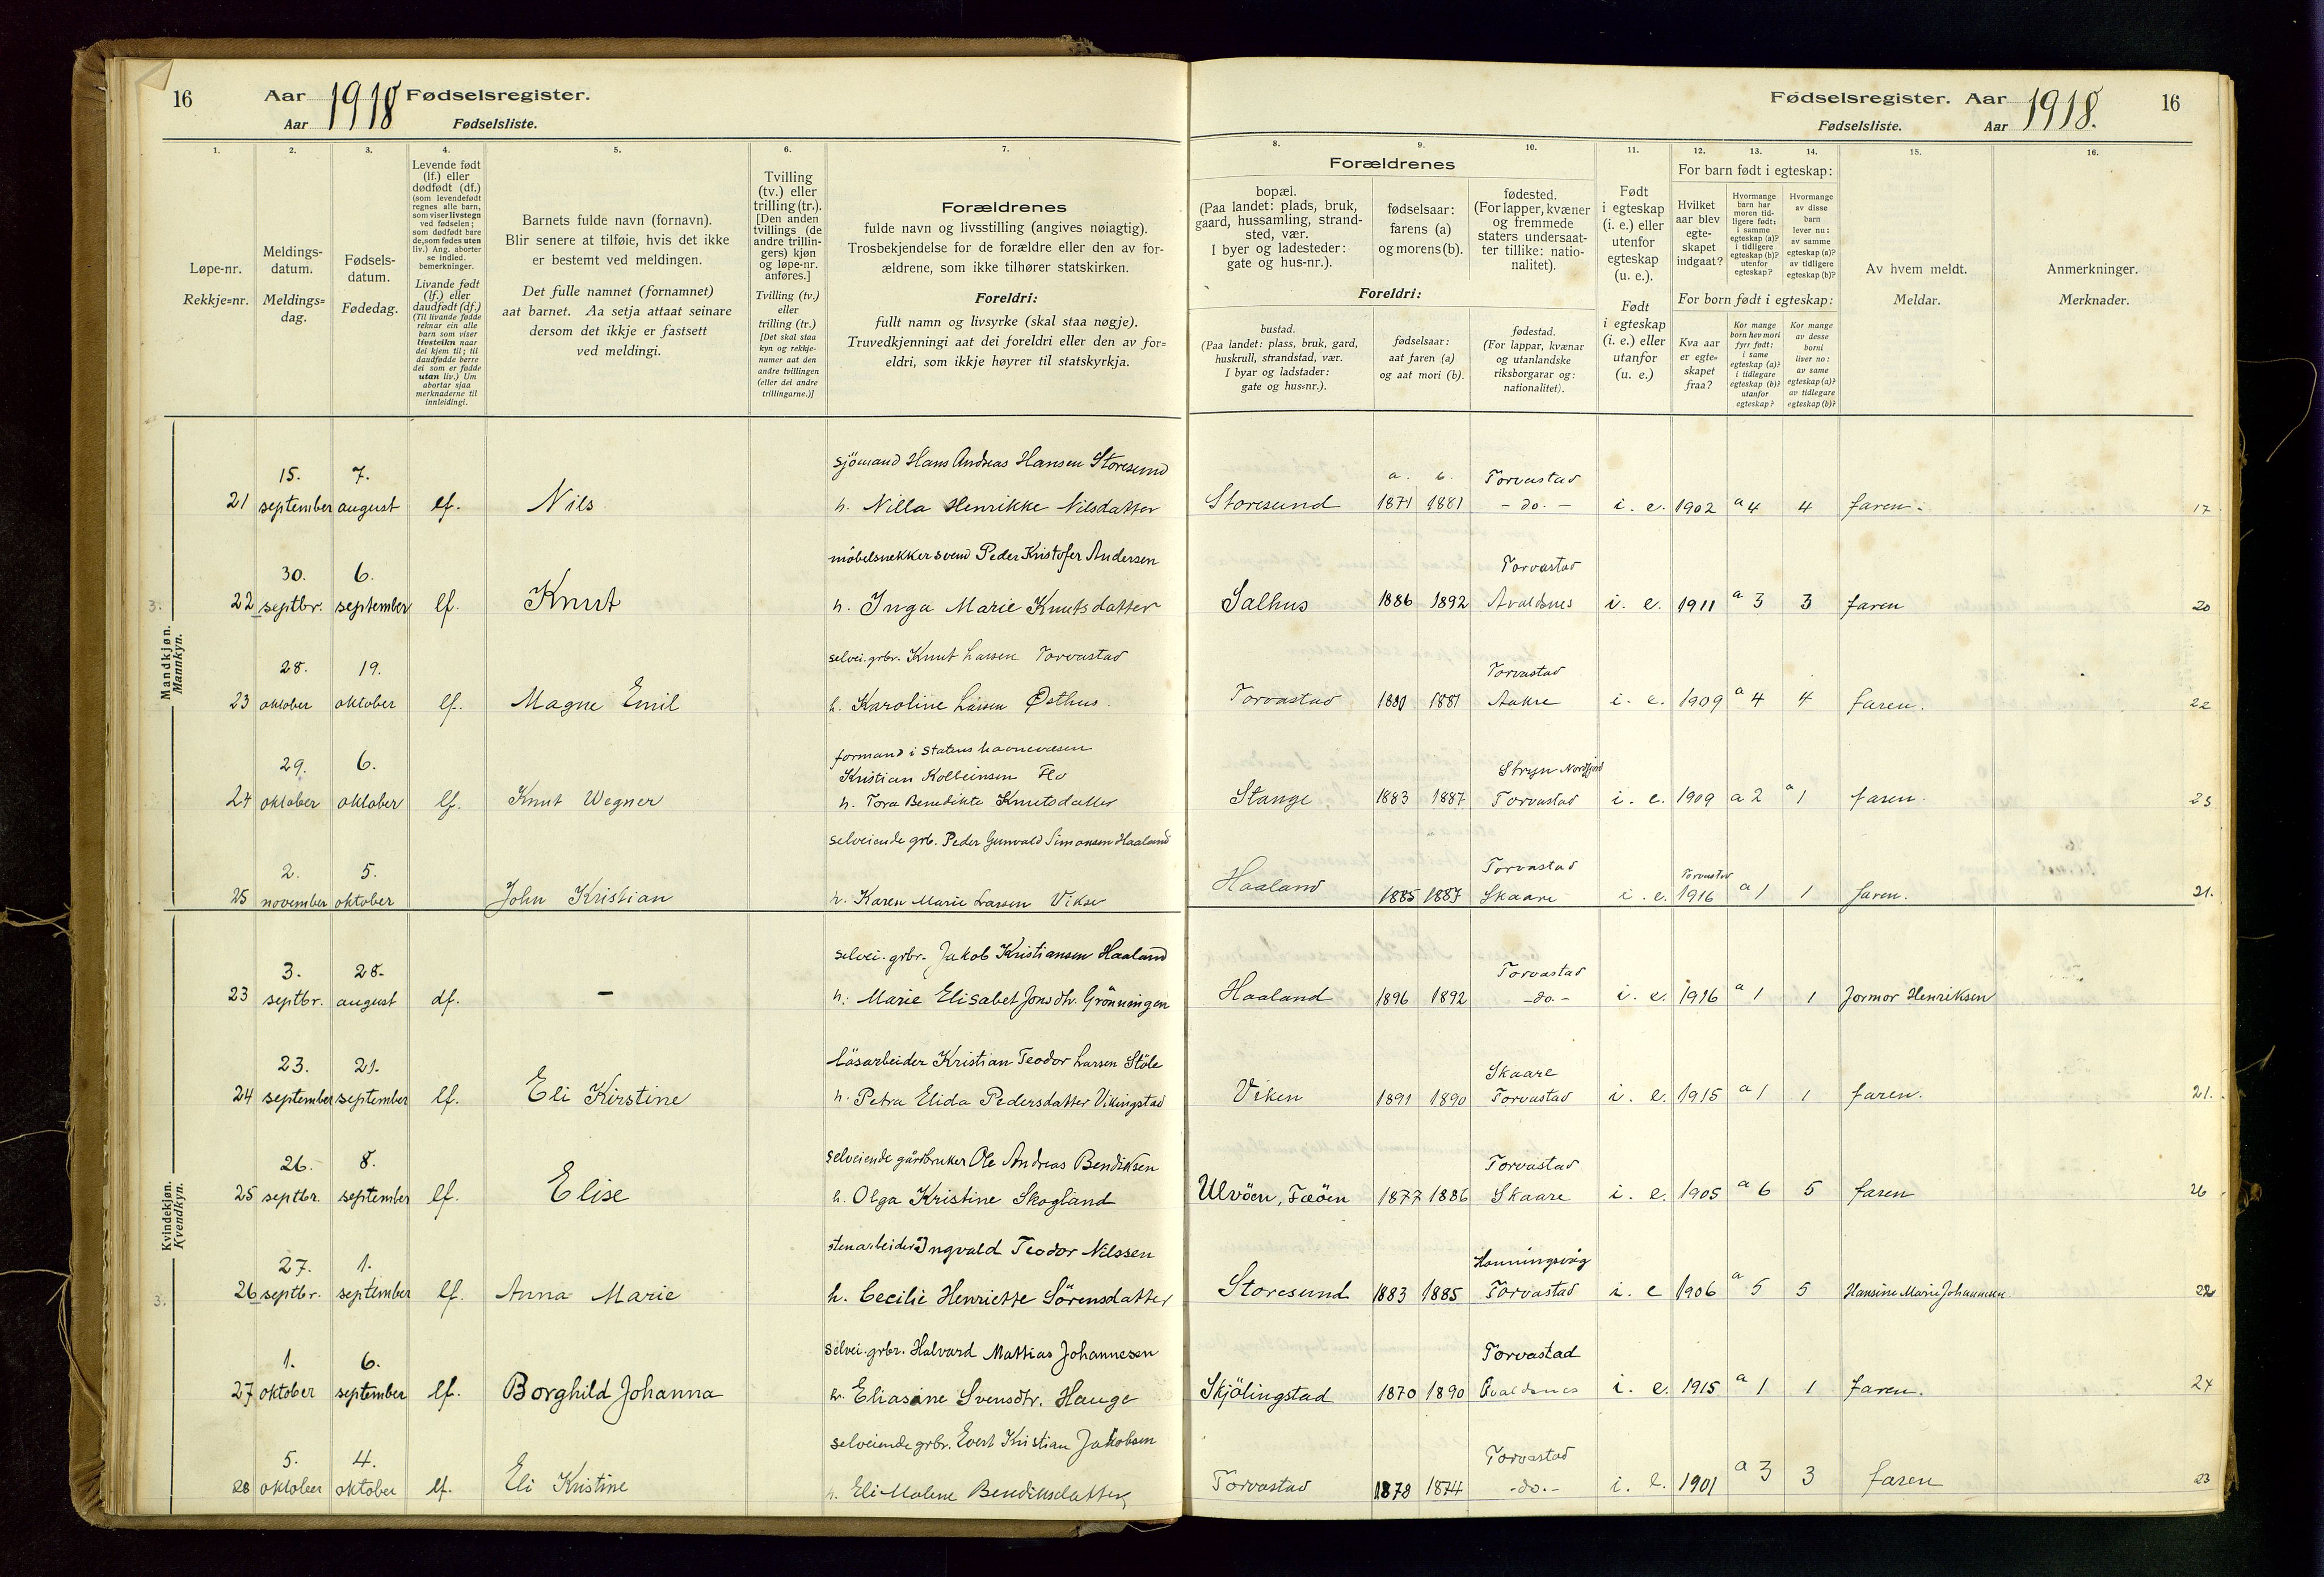 16 Aar 1918 Fødselsregister.
Aar Fødselsliste.
Fødselsregister. Aar 1918. 16
Fødselsliste. Aar
1. 2. 3. 4. 5. 6. 7. 8. 9. 10. 11. 12. 13. 14. 15. 16.
Løpe-nr.
Rekkje=nr.
Meldings-
datum.
Meldings=
dag.
Fødsels-
datum.
Fødedag.
Levende født
(lf.) eller
dødfødt (df.)
(som levendefødt
regnes alle barn,
som viser livstegn
ved fødselen;
som dødfødt bare
de, som fødes uten
liv.) Ang. aborter
se indled.
bemerkninger.
Livande født
(lf.) eller
daudfødt (df.)
(Til livande fødde
reknar ein alle
barn som viser
livsteikn naar
dei kjem til; til
daudfødde berre
dei som er fødde
utan liv.) Um
abortar sjaa
merknaderne til
innleidingi.
Barnets fulde navn (fornavn).
Blir senere at tilføie, hvis det ikke
er bestemt ved meldingen.
Det fulle namnet (fornamnet)
aat barnet. Aa setja attaat seinare
dersom det ikkje er fastsett
ved meldingi.
Tvilling
(tv.) eller
trilling (tr.).
[Den anden
tvillings (de
andre trillin-
gers) kjøn
og løpe-nr.
anføres.]
Tvilling (tv.)
eller
trilling (tr.)
[Det skal staa
kyn og rekkje-
numer aat den
andre tvillingen
(eller dei andre
trillingarne.)]
Forældrenes
fulde navn og livsstilling (angives nøiagtig).
Trosbekjendelse for de forældre eller den av for-
ældrene, som ikke tilhører statskirken.
Foreldri:
fullt namn og livsyrke (skal staa nøgje).
Truvedkjenningi aat dei foreldri eller den av for=
eldri, som ikkje høyrer til statskyrkja.
Forældrenes
bopæl.
(Paa landet: plads, bruk,
gaard, hussamling, strand-
sted, vær.
I byer og ladesteder:
gate og hus-nr.).
fødselsaar:
farens (a)
og morens (b).
fødested.
(For lapper, kvæner
og fremmede
staters undersaat-
ter tillike: natio-
nalitet).
Foreldri:
bustad.
(Paa landet: plass, bruk, gard,
huskrull, strandstad, vær.
I byar og ladstader:
gate og hus=nr.).
fødselsaar:
aat faren (a)
og aat mori (b).
fødestad.
(For lappar, kvænar
og utanlandske
riksborgarar og:
nationalitet).
Født
i egteskap
(i. e.) eller
utenfor
egteskap
(u. e.).
Født
i egteskap
(i. e.) eller
utanfor
(u. e.)
For barn født i egteskap:
Hvilket
aar blev
egte-
skapet
indgaat?
Hvormange
barn har
moren tid-
ligere født:
i samme
egteskap (a)?
i tidligere
egteskap (b)?
utenfor
egteskap?
Hvormange
av disse
barn
lever nu:
av samme
egteskap (a)?
av tidligere
egteskap (b)?
For born født i egteskap:
Kva aar
er egte=
skapet
fraa?
Kor mange
born hev mori
fyrr født:
i same
egteskap (a)?
i tidlegare
egteskap (b)?
utanfor
egteskap?
Kor mange
av desse
borni
liver no:
av same
egteskap (a)?
av tidlegare
egteskap (b)?
Av hvem meldt.
Meldar.
Anmerkninger.
Merknader.
Mandkjøn.
Mannkyn.
15. 7. sjömand Hans Andreas Hansen Storesund a. b. Torvastad
21 september august lf. Nils h. Nilla Henrikke Nilsdatter Storesund 1871 1881 - do. - i. e. 1902 a 4 4 faren. 17
30. 6. möbelsnekkersvend Peder Kristofer Andersen Torvastad
3. 22 septbr. september lf. Knut h. Inga Marie Knutsdatter Salhus 1886 1892 Avaldsnes i. e. 1911 a 3 3 faren 20
28. 19. selvei. grbr. Knut Larsen Torvastad Torvastad
23 oktober oktober lf. Magne Emil h. Karoline Larsen Østhus. Torvastad 1880 1881 Aakre i. e. 1909 a 4 4 faren. 22
29. 6. formand i Statens havnevæsen
Kristian Kolbeinsen Flo Stryn Nordfjord
24 oktober oktober lf. Knut Wegner h. Tora Benedikte Knutsdatter Stange 1883 1887 Torvastad i. e. 1909 a 2 a 1 faren. 23
2. 5. selveiende grb. Peder Gunvald Simonsen Haaland Torvastad Torvastad
25 november oktober John Kristian h. Karen Marie Larsen Vikse Haaland 1885 1887 Skaare i. e. 1916 a 1 1 faren. 21.
Kvindekjøn.
Kvendkyn.
3. 28. selvei. grbr. Jakob Kristiansen Haaland Torvastad
23 septbr. august df. - h. Marie Elisabet Jonsdtr. Grönningen Haaland 1896 1892 -do.- i. e. 1916 a 1 1 Jormor Henriksen
23. 21. lösarbeider Kristian Teodor Larsen Stöle Skaare
24 september september lf. Eli Kirstine h. Petra Elida Pedersdatter Vikingstad Viken 1891 1890 Torvastad i. e. 1915 a 1 1 faren. 21.
26. 8. selveiende gårdbruker Ole Andreas Bendiksen Torvastad
25 septbr. september lf. Elise h. Olga Kristine Skogland Ulvöen, Fæöen 1877 1886 Skaare i. e. 1905 a 6 5 faren 26
27. 1. stenarbeider Ingvald Teodor Nilssen Honningsvåg
3. 26 septbr. september lf. Anna Marie h. Cecilie Henriette Sörensdatter Storesund 1883 1885 Torvastad i. e 1906 a 5 5 Hansine Marie Johannesen 22
1. 6. selvei. grbr. Halvard Mattias Johannesen Torvastad
27 oktober september lf. Borghild Johanna h. Eliasine Svensdtr. Hauge Skjölingstad 1870 1890 Avaldsnes i. e. 1915 a 1 1 faren. 24
5. 4. selveiende grbr. Evert Kristian Jakobsen Torvastad
28 oktober oktober lf. Eli Kristine h. Eli Malene Bendiksdatter Torvastad 1878 1874 -do.- i. e. 1901 a 3 3 faren 23